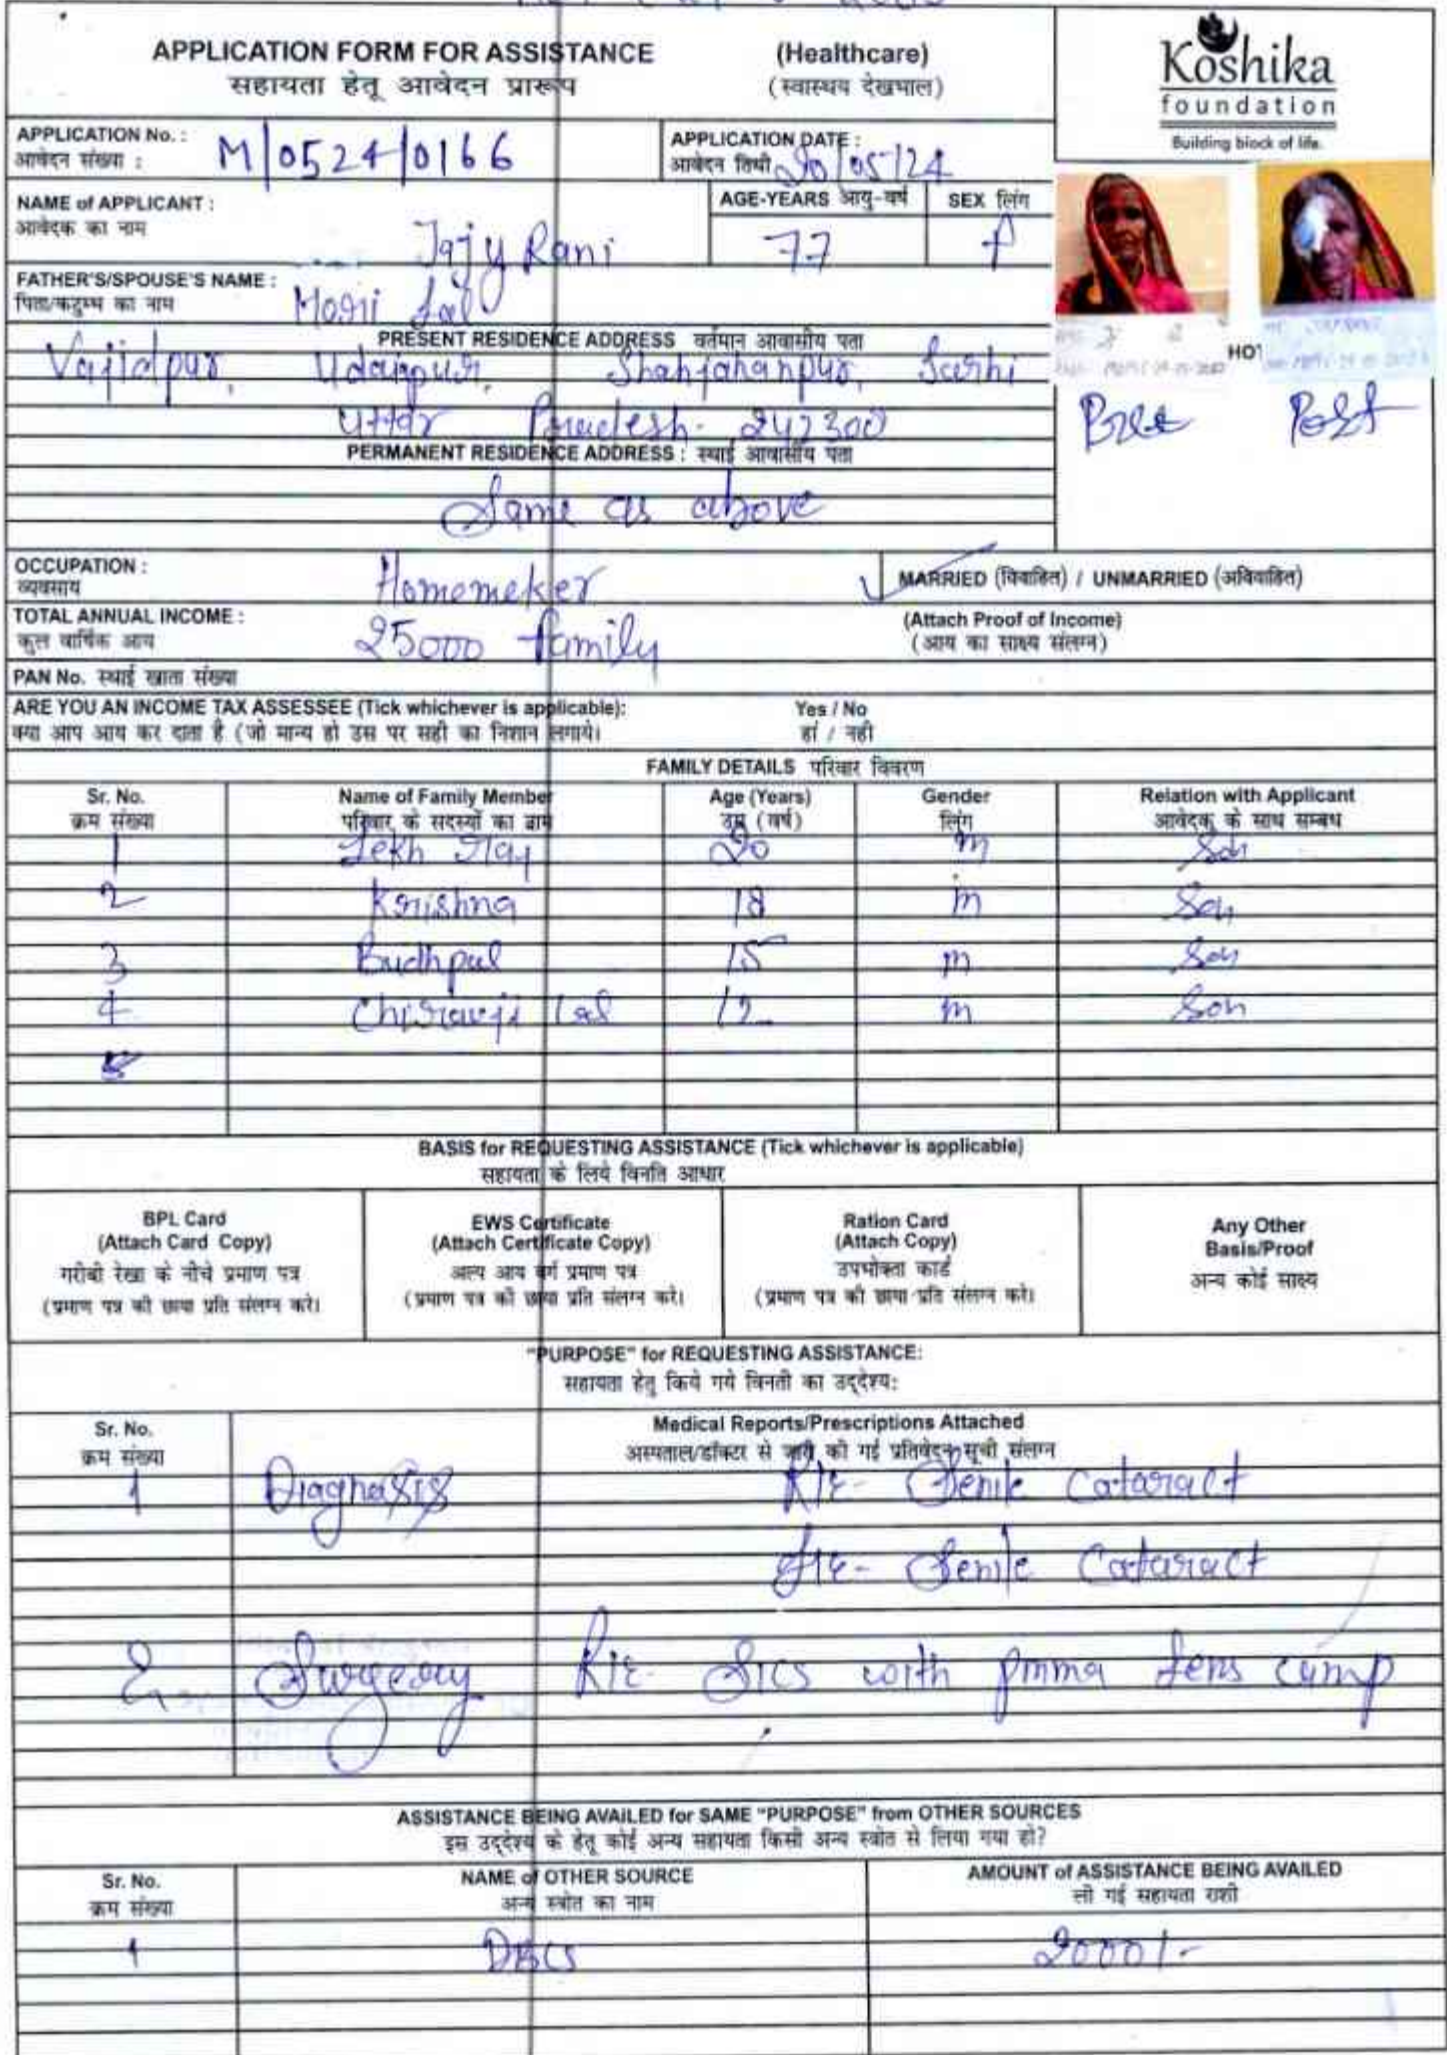 APPLICATION FORM FOR ASSISTANCE (Healthcare)
सहायता हेतू आवेदन प्रारूप (स्वास्थय देखभाल)
Koshika
foundation
Building block of life.
APPLICATION No. : M/0524/0166
आवेदन संख्या :
APPLICATION DATE : 20/05/24
आवेदन तिथी
NAME of APPLICANT : Jajy Rani
आवेदक का नाम
AGE-YEARS आयु-वर्ष 77
SEX लिंग F
FATHER'S/SPOUSE'S NAME :
पिता/कटुम्ब का नाम
PRESENT RESIDENCE ADDRESS वर्तमान आवासीय पता
Vajidpur, Udaipur, Shahjahanpur,
Uttar Pradesh- 242300
Pree Post
PERMANENT RESIDENCE ADDRESS : स्थाई आवासीय पता
Same as above
OCCUPATION : Homemeker
व्यवसाय
MARRIED (विवाहित) / UNMARRIED (अविवाहित)
TOTAL ANNUAL INCOME : 25000 family
कुल वार्षिक आय
(Attach Proof of Income)
(आय का साक्ष्य संलग्न)
PAN No. स्थाई खाता संख्या
ARE YOU AN INCOME TAX ASSESSEE (Tick whichever is applicable): Yes / No
क्या आप आय कर दाता है (जो मान्य हो उस पर सही का निशान लगाये। हां / नही
FAMILY DETAILS परिवार विवरण
Sr. No. Name of Family Member Age (Years) Gender Relation with Applicant
क्रम संख्या परिवार के सदस्यों का नाम उम्र (वर्ष) लिंग आवेदक के साथ सम्बध
1 Lekh Raj 20 m Son
2 Krishna 18 m Son
3 Budhpal 15 m Son
4 Chiravji Lal 12 m Son
5
BASIS for REQUESTING ASSISTANCE (Tick whichever is applicable)
सहायता के लिये विनति आधार
BPL Card
(Attach Card Copy)
गरीबी रेखा के नीचे प्रमाण पत्र
(प्रमाण पत्र की छाया प्रति संलग्न करे।
EWS Certificate
(Attach Certificate Copy)
अल्प आय वर्ग प्रमाण पत्र
(प्रमाण पत्र की छाया प्रति संलग्न करे।
Ration Card
(Attach Copy)
उपभोक्ता कार्ड
(प्रमाण पत्र की छाया प्रति संलग्न करे।
Any Other
Basis/Proof
अन्य कोई साक्ष्य
"PURPOSE" for REQUESTING ASSISTANCE:
सहायता हेतु किये गये विनती का उद्देश्य:
Sr. No. Medical Reports/Prescriptions Attached
क्रम संख्या अस्पताल/डॉक्टर से जारी की गई प्रतिवेदन सूची संलग्न
1 Diagnosis R/E- Senile Cataract
L/E- Senile Cataract
2 Surgery R/E- SICS with pmma lens camp
ASSISTANCE BEING AVAILED for SAME "PURPOSE" from OTHER SOURCES
इस उद्देश्य के हेतू कोई अन्य सहायता किसी अन्य स्त्रोत से लिया गया हो?
Sr. No. NAME of OTHER SOURCE AMOUNT of ASSISTANCE BEING AVAILED
क्रम संख्या अन्य स्त्रोत का नाम ली गई सहायता राशी
1 DBCS 2000/-